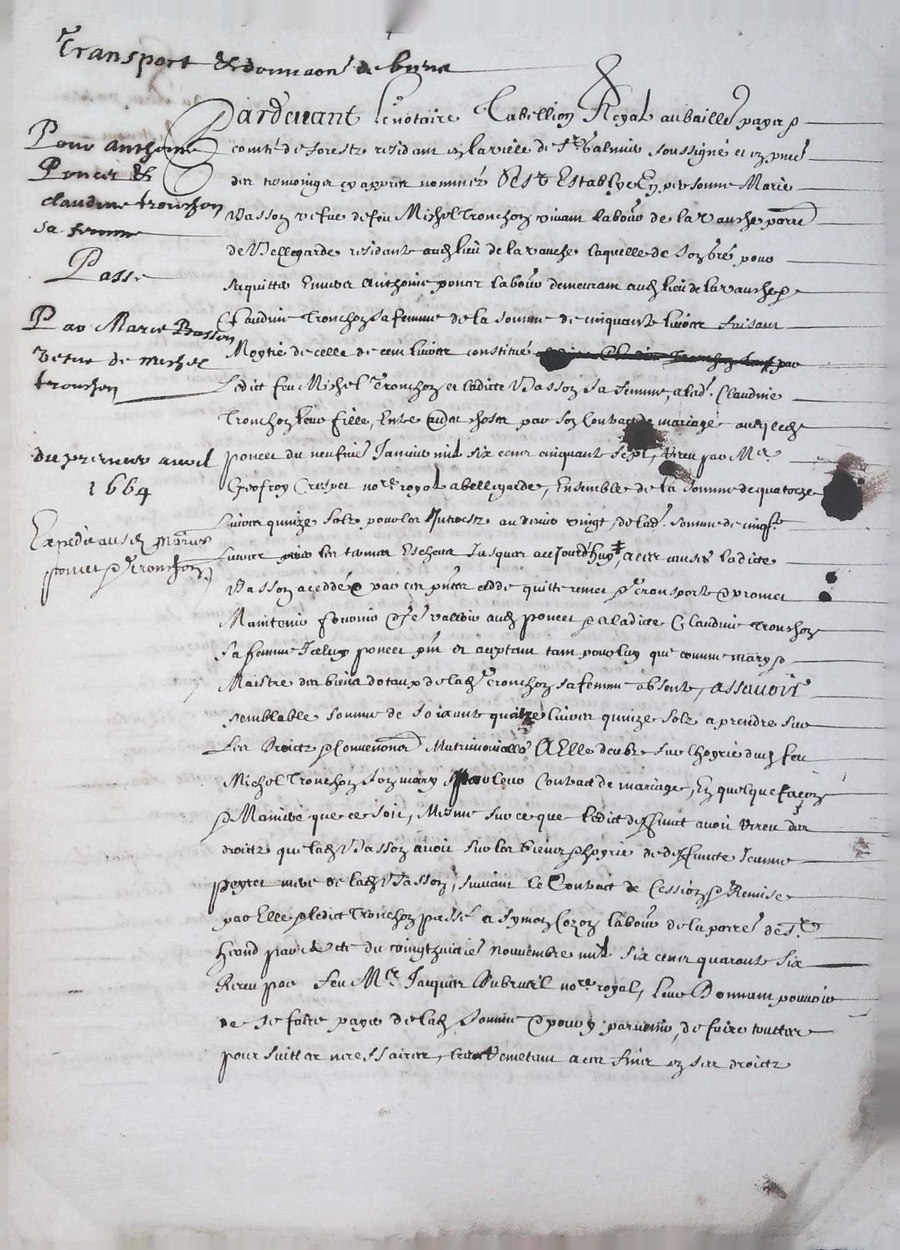 Transport & donnaon de biens
Pour anthoine
Poncet &
claudine tronchon
sa femme
Passé
Par Marie Basson
vefve de michel
tronchon
du premier avril
1664
Expédié ausd. mariés
poncet & Tronchon
Pardevant le notaire Tabellion Royal au baillage payes &
comté de forestz residant en la ville de St Galmier soussigné et en pnce
des tesmoings cy appres nommés S'est Establye En personne Marie
Basson vefue de feu Michel Tronchon vivant labour de la Vauche parre
de Bellegarde residante aud. lieu de la vauche laquelle de son bré pour
saquitter Envers Anthoine poncet labour demeurant aud. lieu de la vauche &
Claudine Tronchon sa femme de la somme de cinquante livres faisant
Moytié de celle de cent livres constitué par
Ledict feu Michel Tronchon et ladicte Basson sa femme, a lad. Claudine
Tronchon leur fille, Entre autres choses par son Contract de mariage avec led.
poncet du neufvie Janvier mil six cens cinquante sept, Receu par Me
Geofroy Crespet nore royal a bellegarde, Ensemble de la somme de quatorze
Livres quinze solz pour les Interestz au denier vingt de lad. somme de cinqte
Livres les termes Escheus Jusques aujourd'huy, a ces causes ladicte
Basson a ceddé & par ces pntes cedde quitte remet & transporte & promet
Maintenir fournir & fe valloir aud. poncet & a ladicte Claudine Tronchon
sa femme Iceluy poncet pnt et acceptant tant pour luy que comme mary &
Maistre des biens dotaux de lad. Tronchon sa femme absente, assavoir
semblable somme de soixante quatre livres quinze solz a prendre sur
Les Droictz & Conventions Matrimonielles A Elle deubz sur lhoyrie dud. feu
Michel Tronchon son mary par leur Contract de mariage, En quelque façon
& Maniere que ce soit, Mesme sur ce que ledict deffunct avoit Receu des
droictz que lad. Basson avoit sur les biens & hoyrie de deffuncte Jeanne
peyret mere de lad. Basson, suivant le Contract de Cession & Remise
par Elle & ledict Tronchon passé a Symon Cozon labour de la parre de St
heand par acte du vingthuictie novembre mil six cens quarante six
Receu par feu Me Jacques Dubrueil nore royal, leur Donnant pouvoir
de se faire payer de lad. somme & pour y parvenir, de faire touttes
poursuittes necessaires, les metant a ces fins en ses droictz